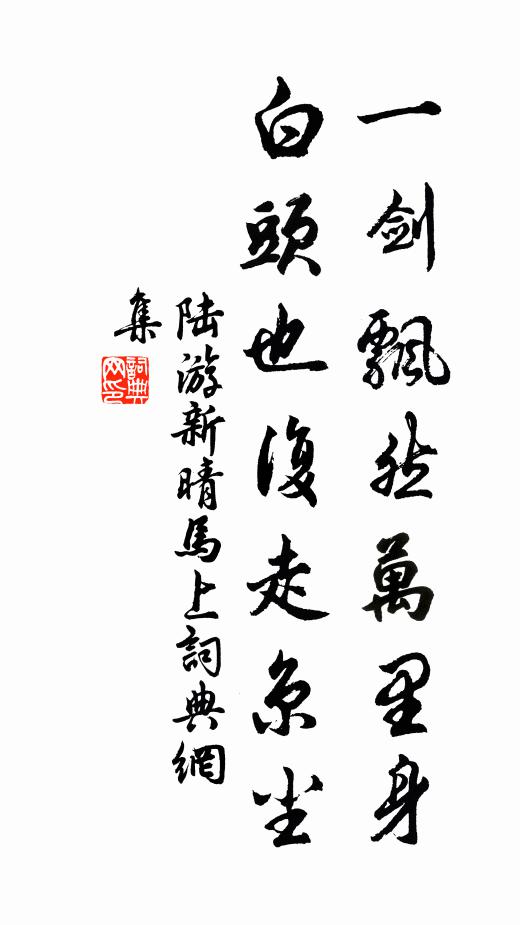 一劍飄然萬里身
白頭也復走京尘
陆游新晴馬上詞典網
集
詞典
网印